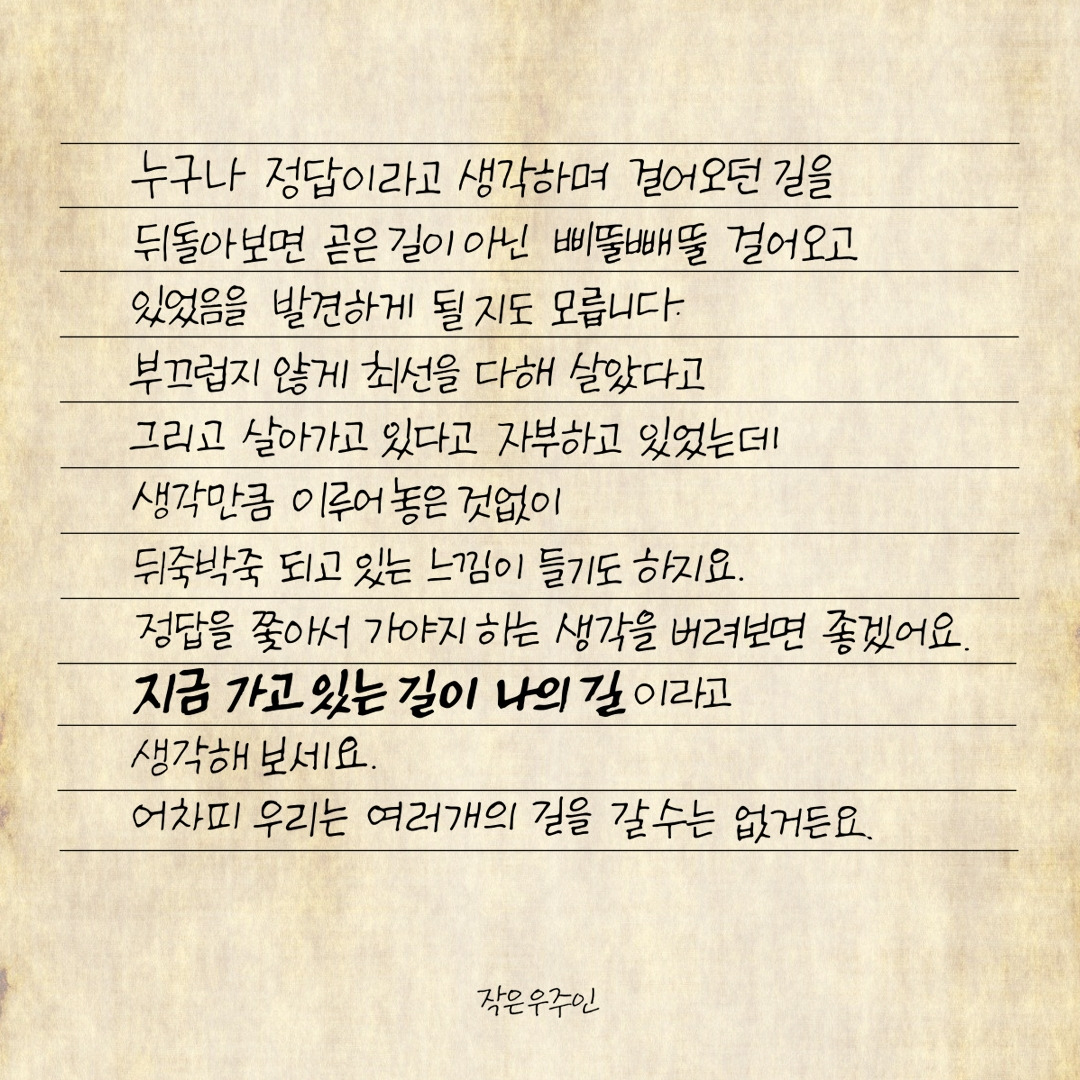 누구나 정답이라고 생각하며 걸어오던 길을
뒤돌아보면 곧은 길이 아닌 삐뚤빼뚤 걸어오고
있었음을 발견하게 될 지도 모릅니다.
부끄럽지 않게 최선을 다해 살았다고
그리고 살아가고 있다고 자부하고 있었는데
생각만큼 이루어 놓은 것없이
뒤죽박죽 되고 있는 느낌이 들기도 하지요.
정답을 쫓아서 가야지 하는 생각을 버려보면 좋겠어요.
지금 가고 있는 길이 나의 길이라고
생각해 보세요.
어차피 우리는 여러개의 길을 갈 수는 없거든요.
작은우주인